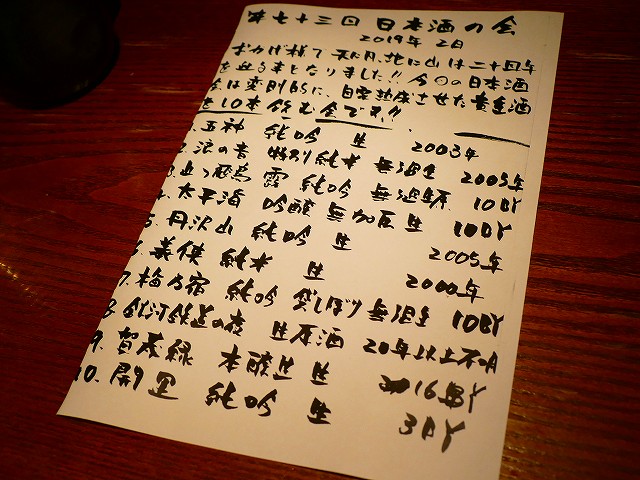 第七十三回 日本酒の会
2019年 2月
おかげ様で 和月、北に山は二十回年
を迎る事となりました!! 今回の日本酒
会は変則的に、自家熟成させた貴重酒
を10本飲む会です!!
1. 玉神 純吟 生 2003年
2. 浪の音 特別純米 無濾生 2005年
3. 露 純吟 無濾原 10BY
4. 太平海 吟醸 無加圧生 10BY
5. 丹沢山 純吟 生 2005年
6. 義侠 純米 生 2000年
7. 梅乃宿 純吟 袋しぼり 無濾生 10BY
8. 銀河鉄道の夜 生原酒 20年以上不明
9. 賀茂緑 本醸生 生 16BY
10. 開運 純吟 生 3BY